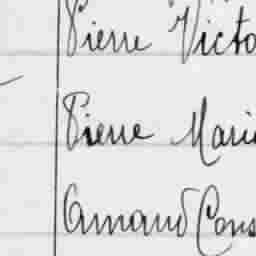 Pierre Victo
Pierre Marie
Armand Cons